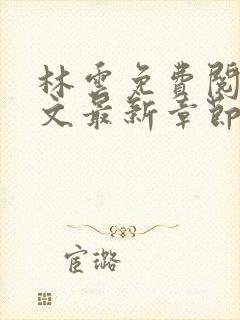 林雲免費閱
文最新章節
宦璐